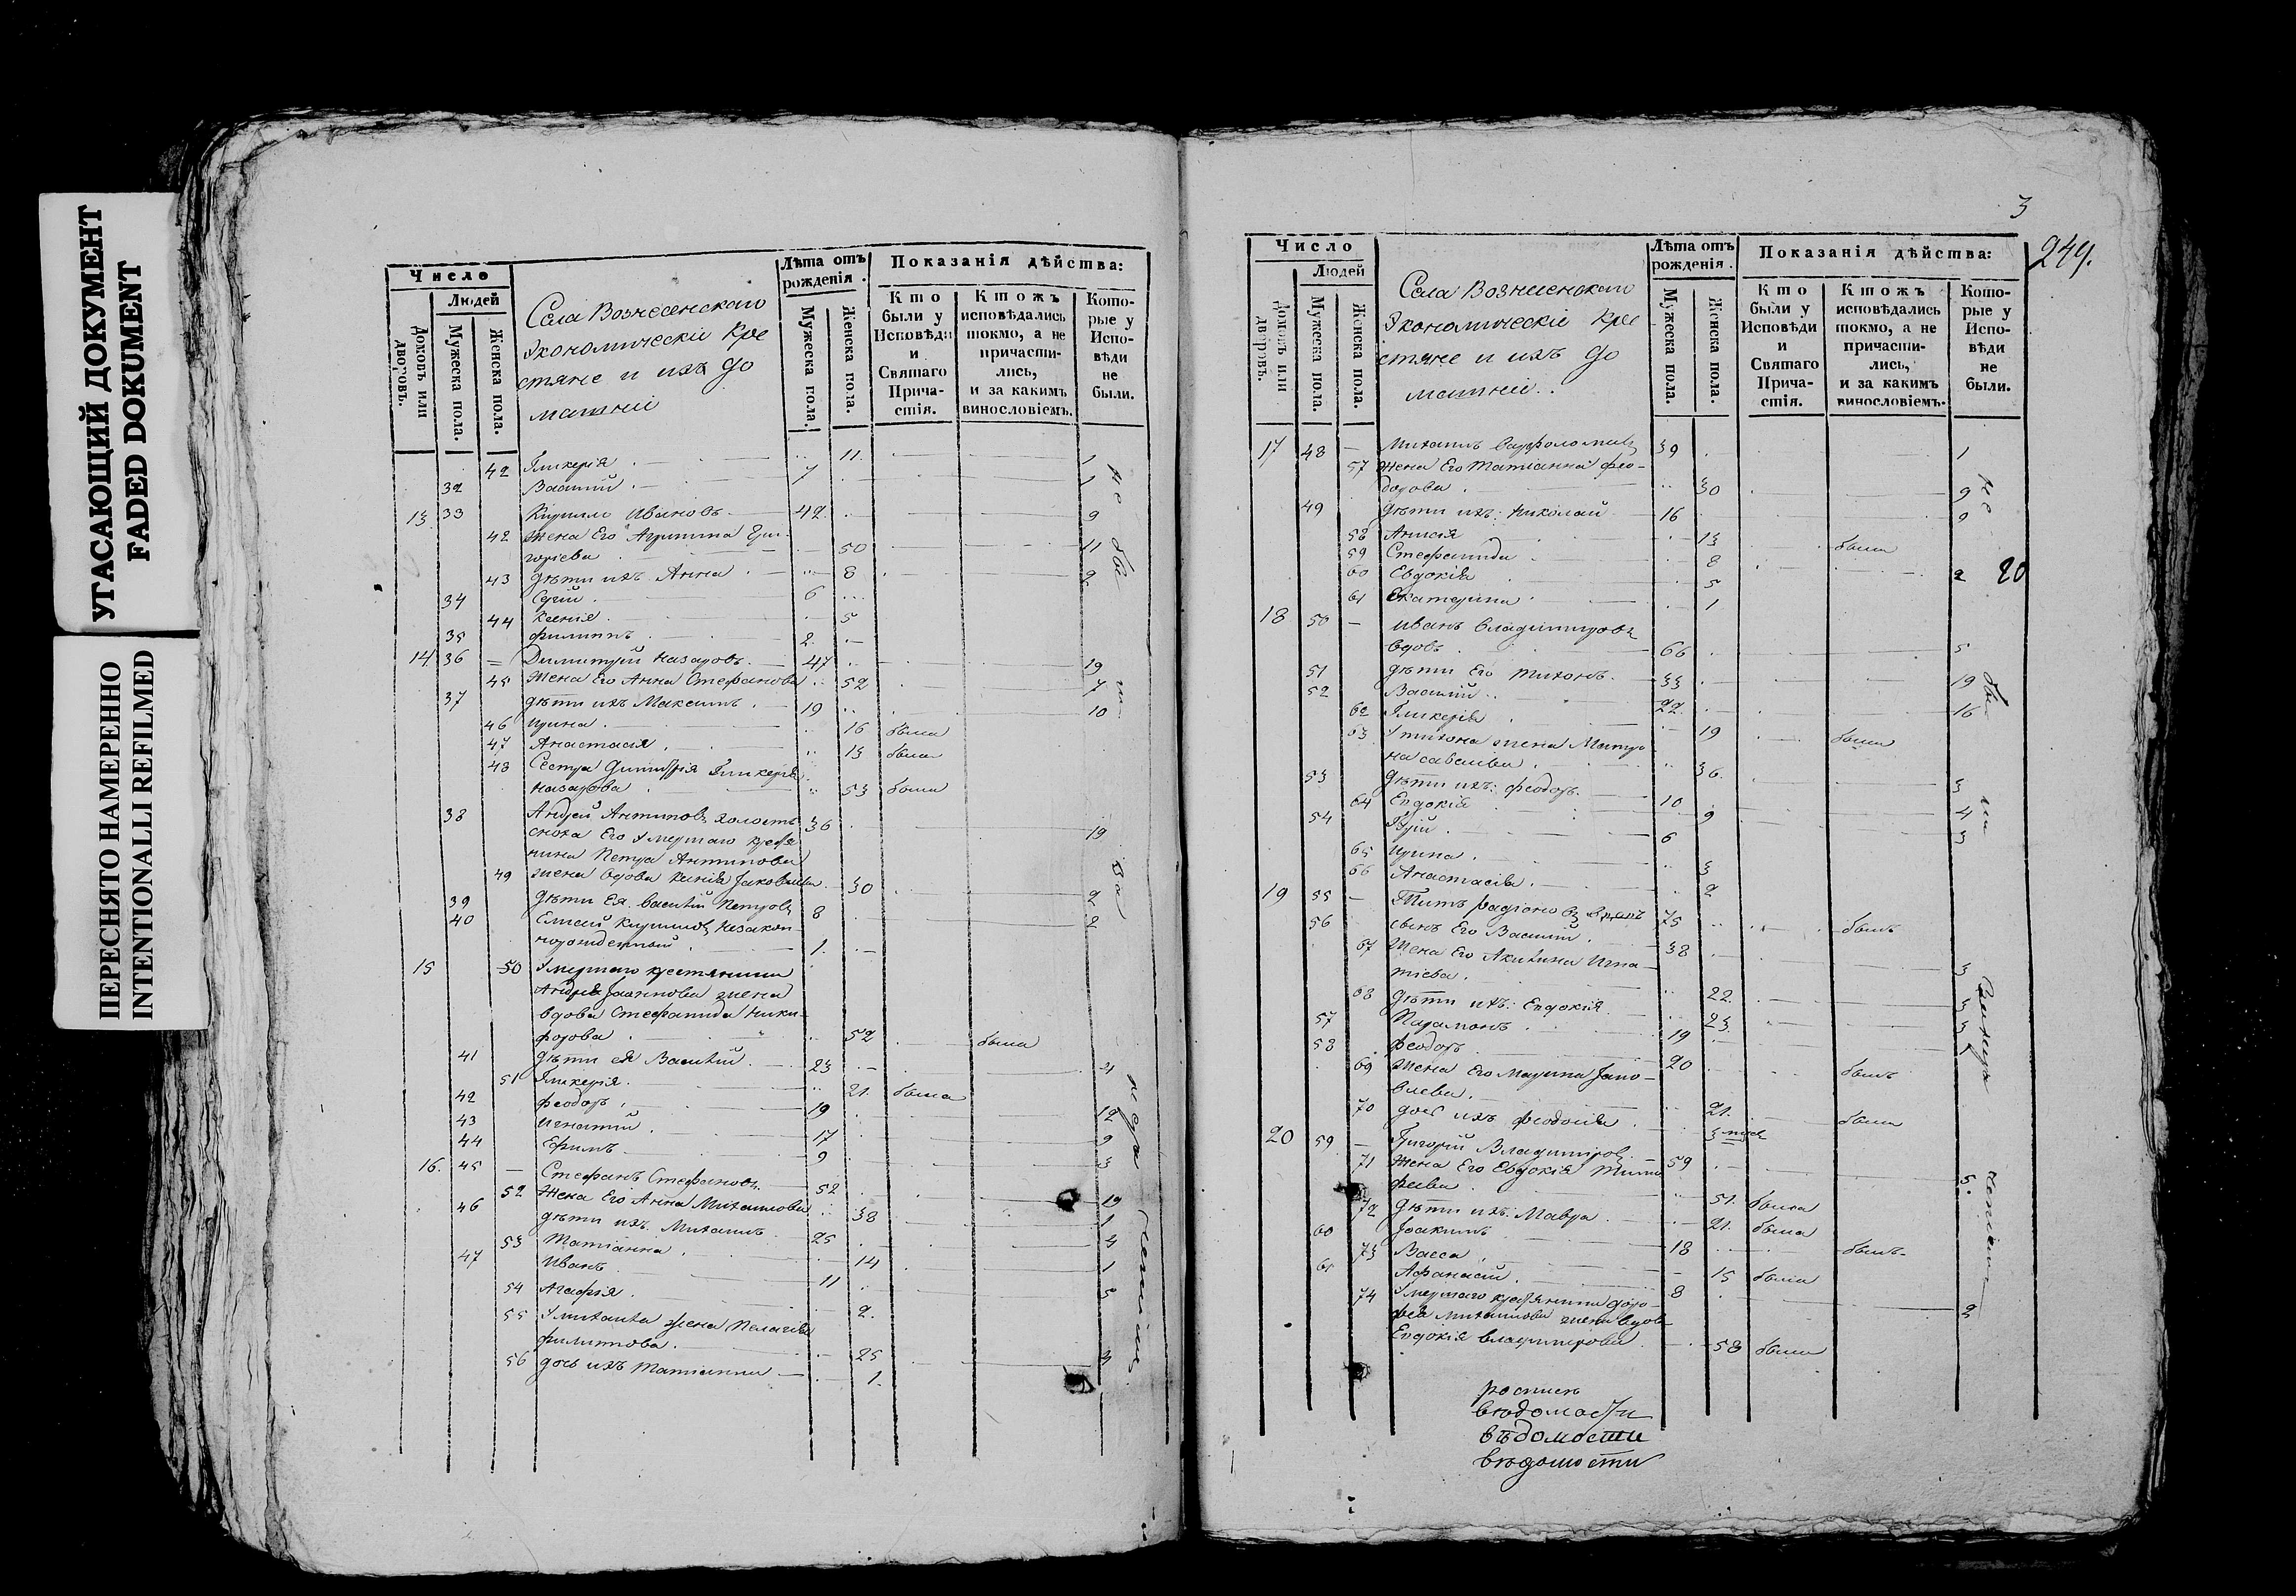 УГАСАЮЩИЙ ДОКУМЕНТ
FADED DOKUMENT
ПЕРЕСНЯТО НАМЕРЕННО
INTENTIONALLI REFILMED
Число
Людей
Домовъ или дворовъ.
Мужеска пола.
Женска пола.
Села Вознесенскаго
Экономическіи Кре
стяне и ихъ до
машніи
Лѣта отъ рожденія.
Мужеска пола.
Женска пола.
Показанія дѣйства:
Кто были у Исповѣди и Святаго Прича-стія.
Ктожъ исповѣдались токмо, а не причасти-лись, и за какимъ винословіемъ.
Кото-рые у Испо-вѣди не были.
42 Гликерія 11
32 Василій 7 1
13 33 Кирилъ Ивановъ 42 9
42 Жена Его Агрипина Гри-
горіева 50 11
43 Дѣти ихъ Анна 8 2
34 Сергій 6
44 Ксенія 5
35 Филиппъ 2
14 36 Димитрій Назаровъ 47 19
45 Жена Его Анна Стефанова 52 7
37 дѣти ихъ Максимъ 19 10
46 Ирина 16 была
47 Анастасія 13 была
48 Сестра Димитрія Гликерія
Назарова 53 была
38 Андрей Антиповъ холостъ 36 19
сноха Его Умершаго крестья
нина Петра Антипова
49 жена вдова Ксенія Іаковлева 30 2
39 Дѣти Ея Василій Петровъ 8 2
40 Елисей Кириловъ Незакон-
норожденный 1
15 50 Умершаго крестянина
Андрея Іоаннова жена
вдова Стефанида Ники-
форова 52 была
41 дѣти ея Василій 23 4
51 Гликерія 21 была
42 Феодоръ 19 12
43 Игнатій 17 9
44 Ефимъ 9 3
16. 45 — Стефанъ Стефановъ 52 19
52 Жена Его Анна Михаилова 38 1
46 дѣти ихъ Михаилъ 25 4
53 Татіанна 14 1
47 Иванъ 11 5
54 Агафія 2
55 У Михаила жена Пелагія
Филиппова 25 3
56 дочь ихъ Татіанна 1
3
249.
Число
Людей
Домовъ или дворовъ.
Мужеска пола.
Женска пола.
Села Вознесенскаго
Экономическіе Кре
стяне и ихъ до
машніи
Лѣта отъ рожденія.
Мужеска пола.
Женска пола.
Показанія дѣйства:
Кто были у Исповѣди и Святаго Прича-стія.
Ктожъ исповѣдались токмо, а не причасти-лись, и за какимъ винословіемъ.
Кото-рые у Испо-вѣди не были.
17 48 — Михаилъ Варфоломеевъ 39 1
57 Жена Его Татіанна Фео-
дорова 30 9
49 дѣти ихъ: Николай 16 9
58 Анисія 13 была
59 Стефанида 8
60 Евдокія 5 2 20
61 Екатерина 1
18 50 — Иванъ Владимировъ
вдовъ 66 5
51 дѣти Его Тихонъ 33 19
52 Василій 22 16
62 Гликерія 19 была
63 У Тихона жена Матро
на Савельева 36 3
53 дѣти ихъ: Феодоръ 10 4
64 Евдокія 9 3
54 Гурій 6
65 Ирина 3
66 Анастасія 2
19 55 — Титъ Радіоновъ вдовъ 75 былъ
56 сынъ Его Василій 38 3
67 Жена Его Акилина Игна-
тіева 22 3
68 дѣти ихъ: Евдокія 23 3
57 Парамонъ 19 1
58 Феодоръ 20 былъ
69 Жена Его Марина Іако-
влева 21 была
70 дочь ихъ Феодосія 3 мѣся
20 59 — Григорій Владимировъ 59 5
71 Жена Его Евдокія Тимо
феева 51 была
72 дѣти ихъ: Мавра 21 была
60 Іоакимъ 18 былъ
73 Васса 15 была
61 Афанасій 8 3
74 Умершаго крестянина Доро-
фея Михаилова жена вдова
Евдокія Владимирова 58 была
роспись
вѣдомости
вѣдомости
вѣдомости